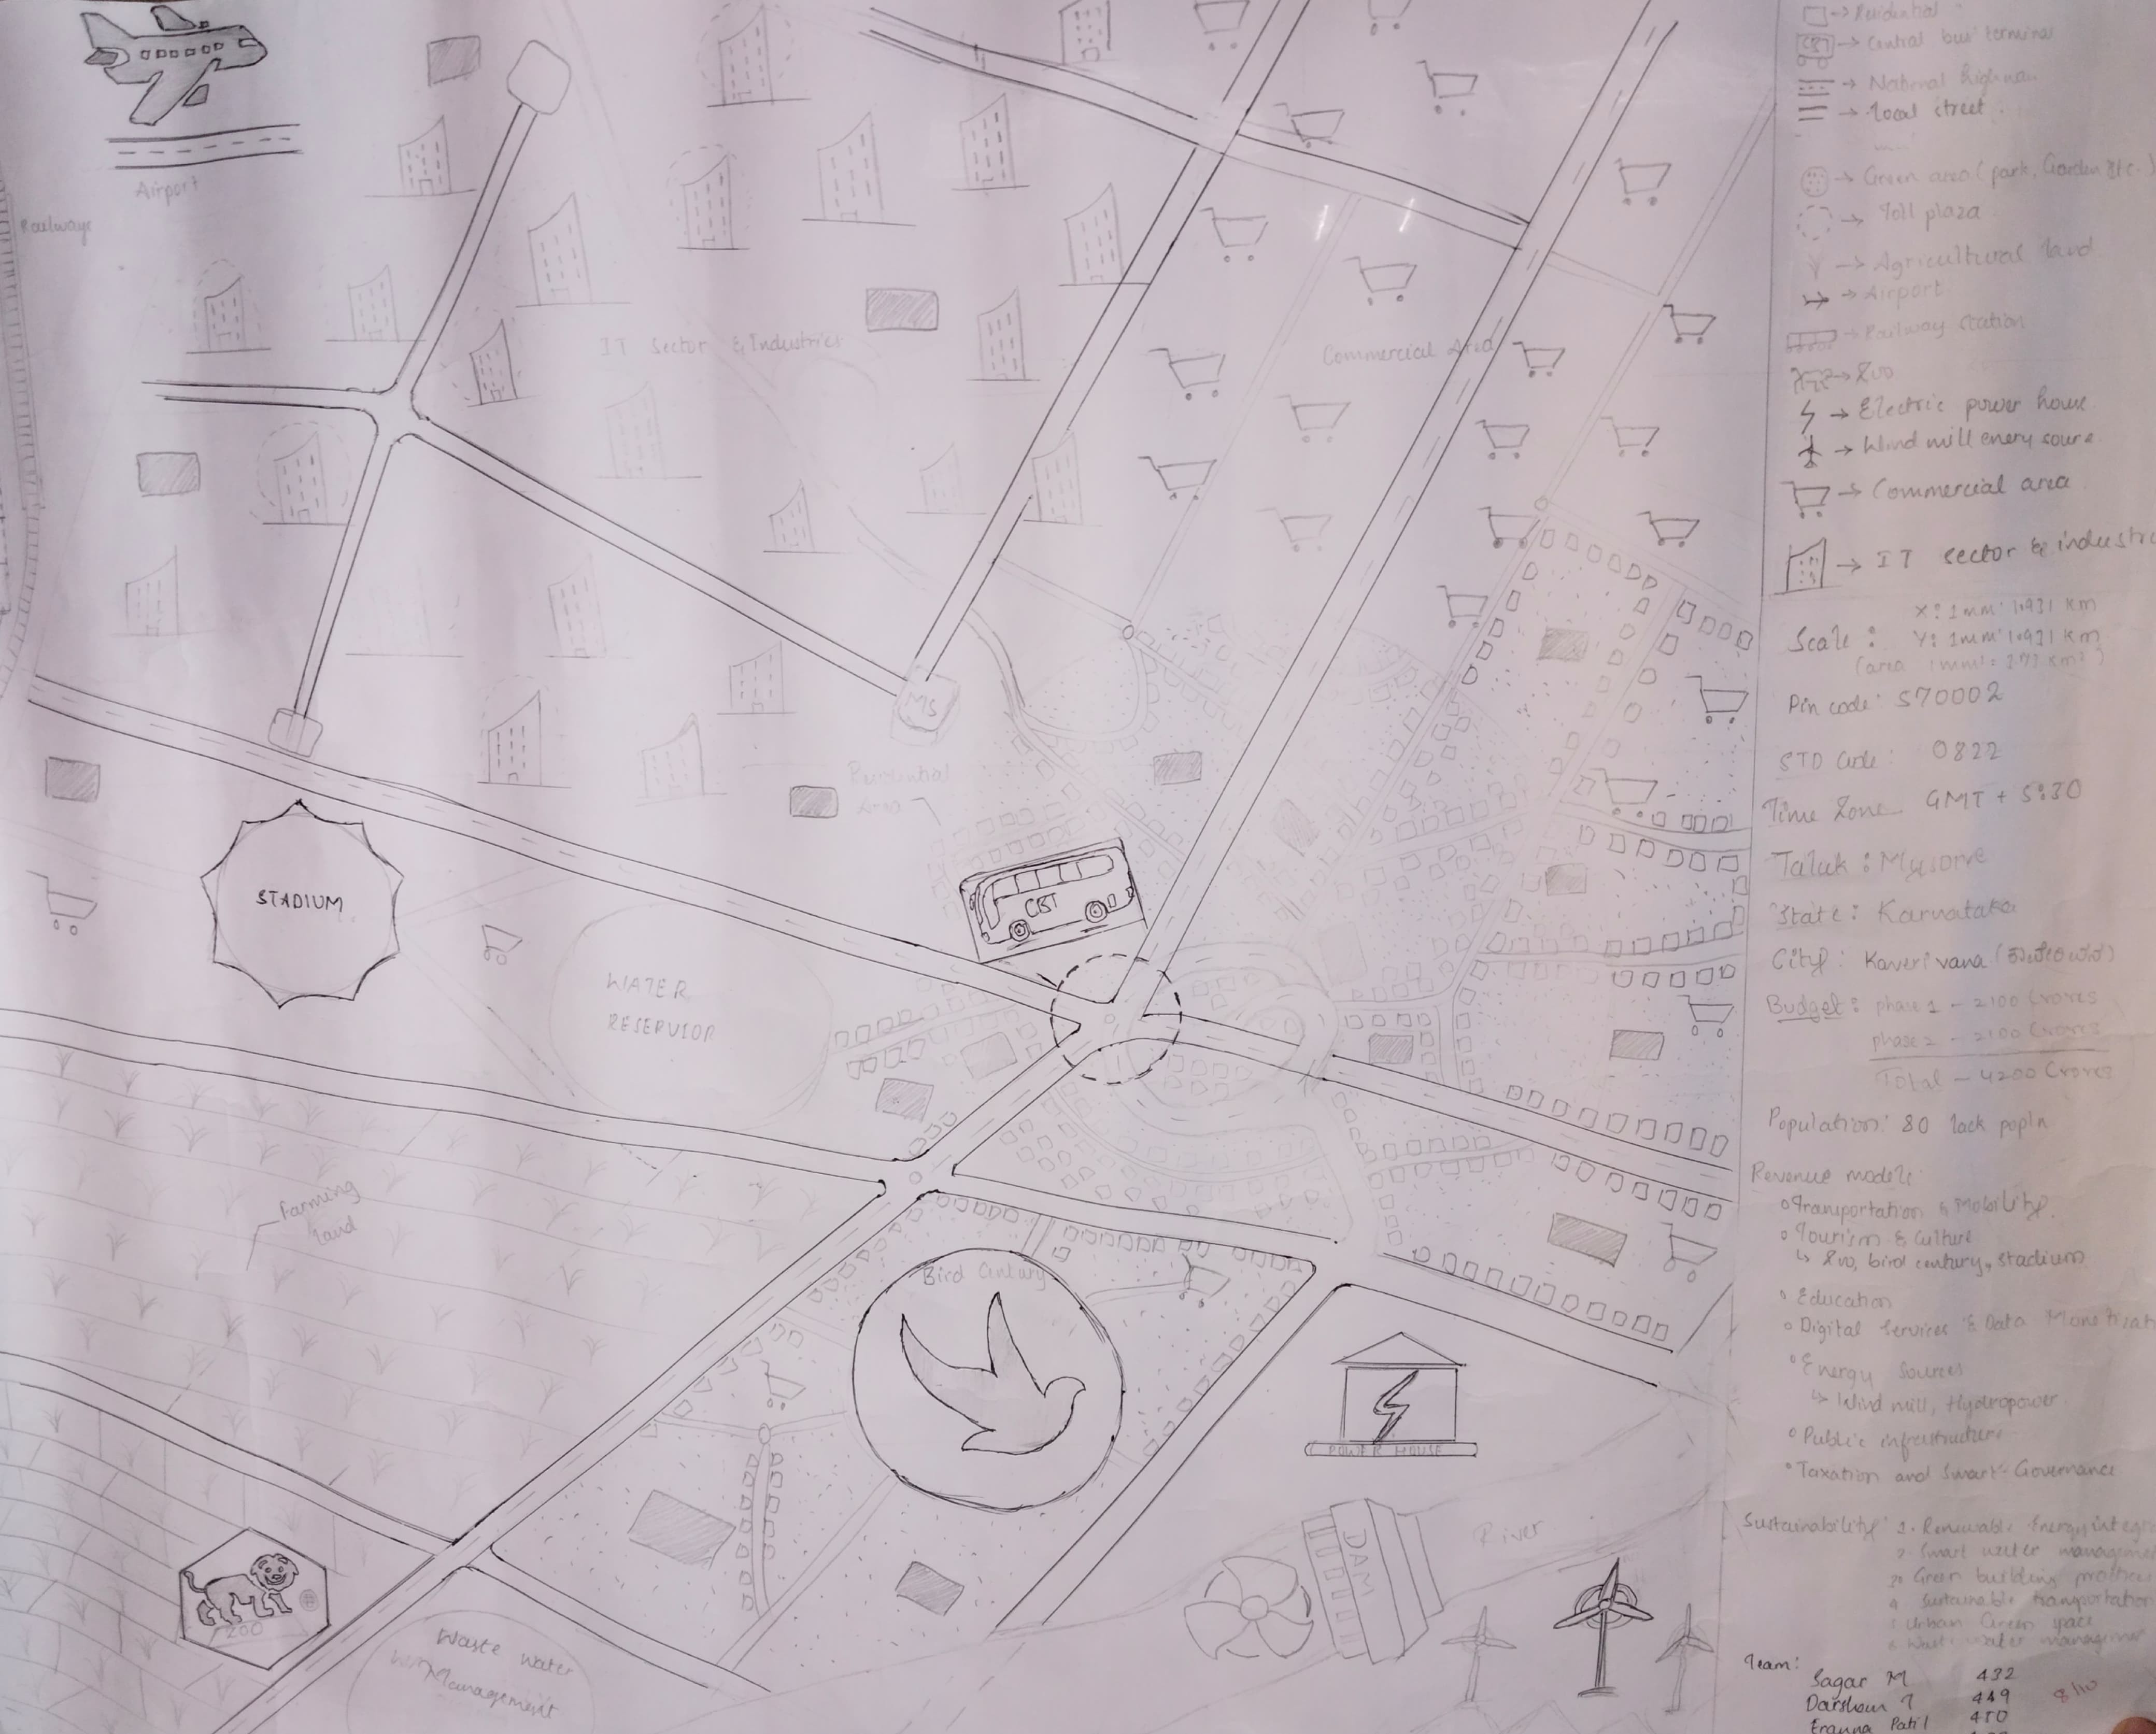 Airport
Railways
IT Sector & Industries
Commercial Area
MS
Residential
Area
CBT
STADIUM
WATER
RESERVIOR
Farming
land
Bird Century
POWER HOUSE
DAM
River
ZOO
Waste water
Management
→ Residential
CBT → Central bus terminal
→ National highway
→ Local street
→ Green area (park, Garden etc.)
→ Toll plaza
→ Agricultural land
→ Airport
→ Railway station
→ Zoo
→ Electric power house
→ Wind mill enery soure
→ Commercial area
→ IT sector & industri
X: 1mm: 1.931 Km
Scale: Y: 1mm: 1.931 Km
Pin code: 570002
STD Code: 0822
Time Zone GMT + 5:30
Taluk: Mysore
State: Karnataka
City: Kaverivana
Budget: phase 1 - 2100 Crores
phase 2 - 2100 Crores
Total - 4200 Crores
Population: 80 lack popln
Revenue models:
Transportation & Mobility.
Tourism & Culture
↳ Zoo, bird century, stadium
Education
Digital Services & Data
Energy Sources
↳ Wind mill, Hydropower
Public infrastructure
Taxation and Smart-Governance
Sustainability 1. Renewable Energy integ
2. Smart water managemen
3. Green building practices
4. Sustainable transportation
Urban Green space
Waste water managemen
Team:
Sagar M 432
Darshan 449
Eranna Patil 450
8/10